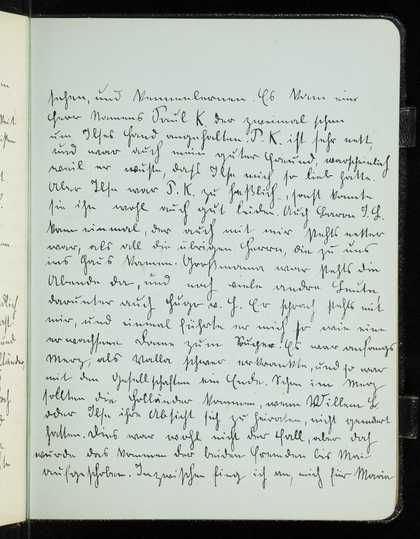 sehen, und kennenlernen. Es kam ein
Herr Namens Paul K. der zweimal schon
um Ilses Hand angehalten. P. K. ist sehr nett,
und war auch mein guter Freund, warscheinlich
weil er wußte, daß Ilse mich so lieb hatte.
Aber Ilse war P. K. zu häßlich, sonst konnte
sie ihn wohl auch gut leiden. Auch Baron J. H.
kam einmal, der auch mit mir stehts netter
war, als all die übrigen Herrn, die zu uns
ins Haus kamen. Großmama war stehts die
Abende da, und noch viele andre Leute
darunter auch Hugo v. H. Er sprach stehts mit
mir, und einmal führte er mich so wie eine
erwachsene Dame zum Es war anfangs
März, als Valla schwer erkrankte, und so war
mit den Gesellschaften ein Ende. Schon im März
sollten die Holländer kommen, wenn Willem &
oder Ilse ihre Absicht sich zu heiraten, nicht geändert
hatten. Dies war wohl nicht der Fall, aber doch
wurde das Kommen der beiden Fremden bis Mai
aufgeschoben. Inzwischen fing ich an, mich für Maria